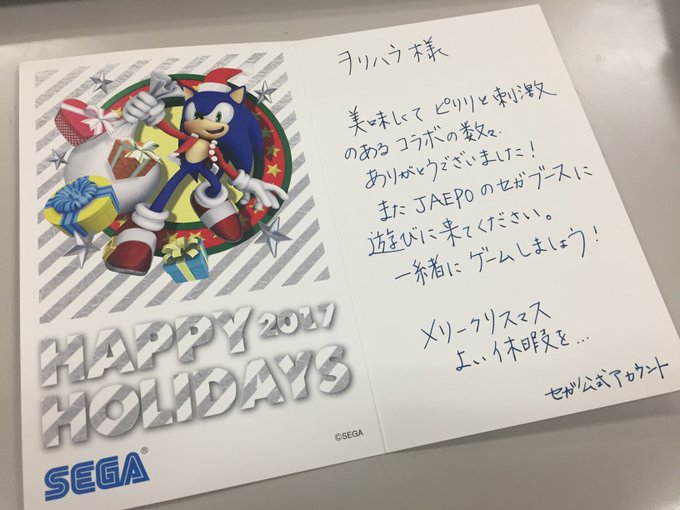 HAPPY 2017
HOLIDAYS
©SEGA
SEGA®
ヲリハラ様
美味しくて ピリリと刺激
のある コラボの数々、
ありがとうございました！
また JAEPOのセガブースに
遊びに来てください。
一緒に ゲームしましょう！
メリークリスマス
よい休暇を…
セガ公式アカウント